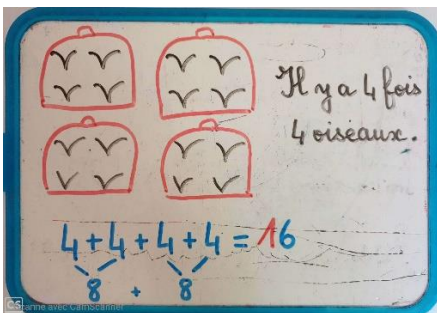 Il y a 4 fois
4 oiseaux.
4+4+4+4=16
8 + 8
CS Scanné avec CamScanner